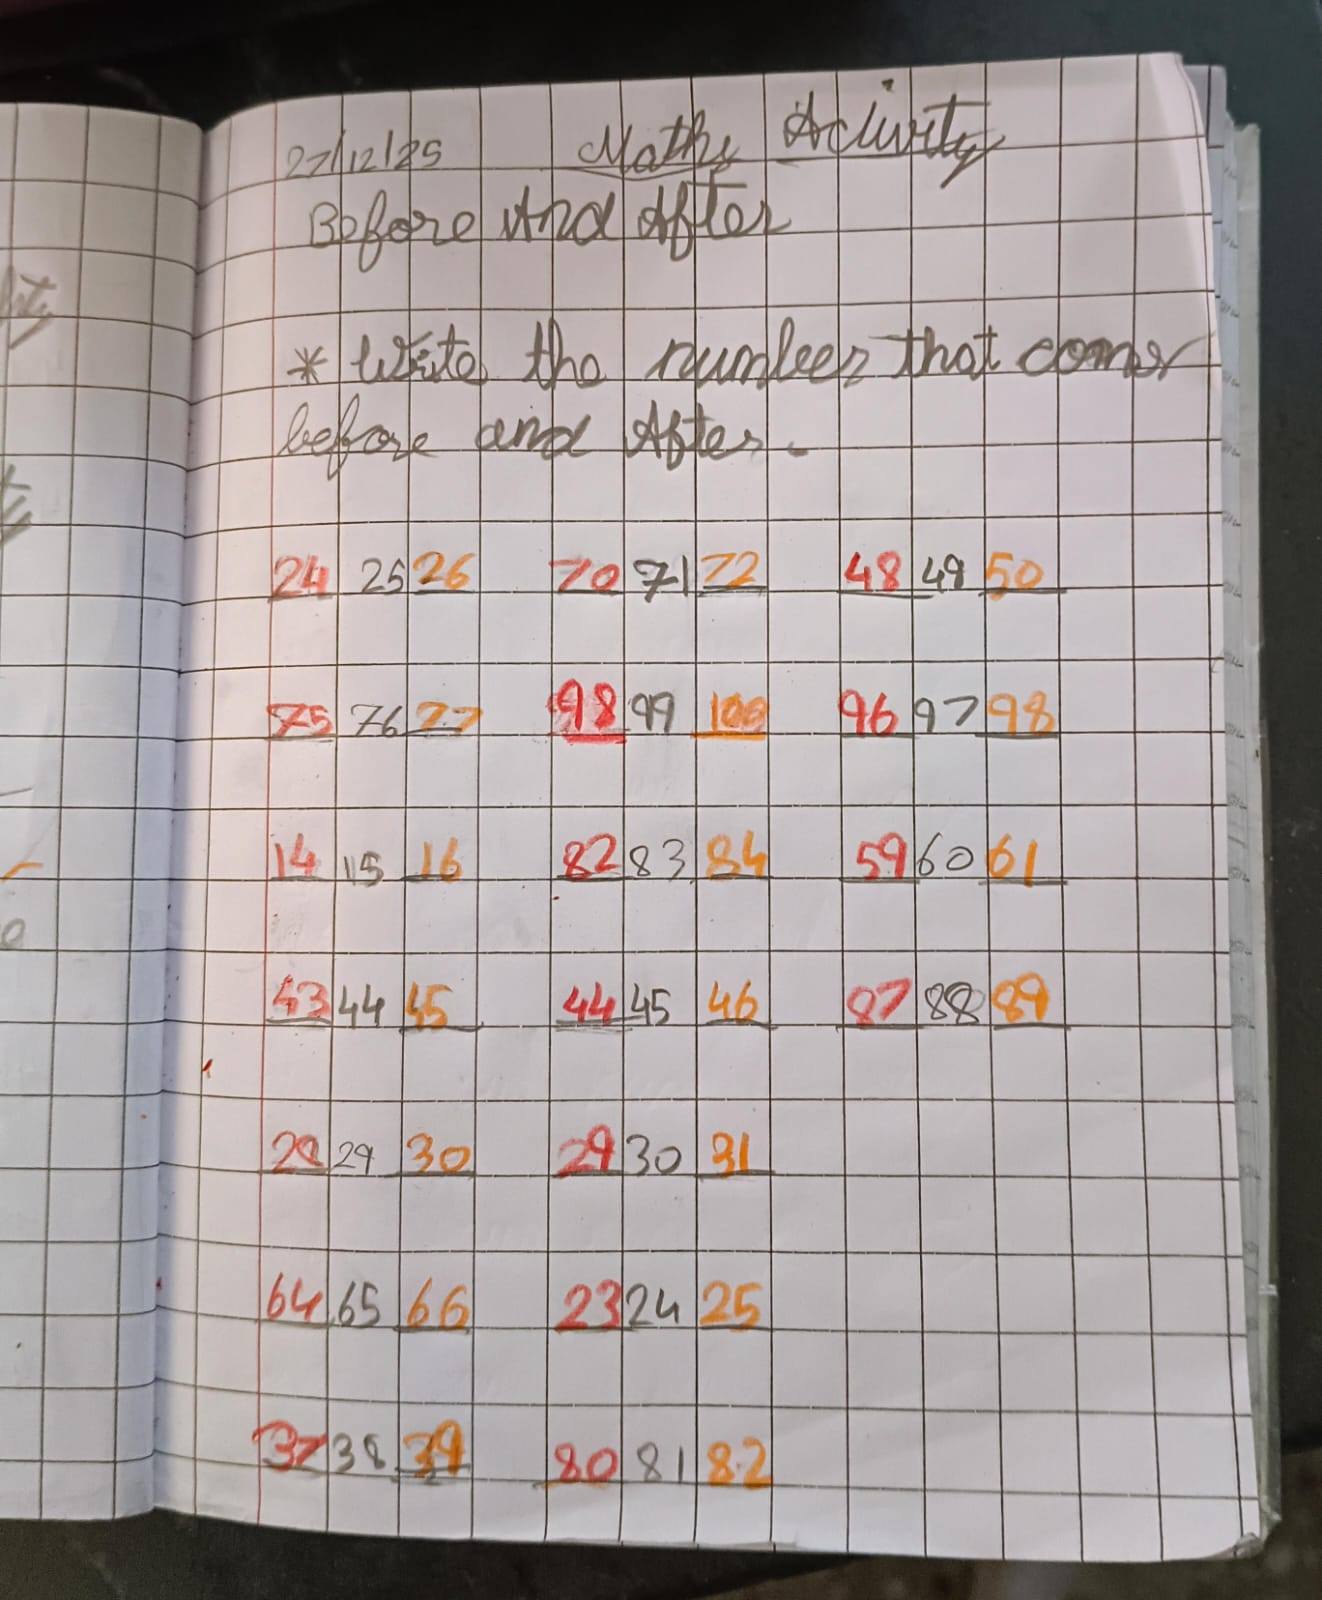 27/12/25 Maths Activity
Before And After
* Write the number that comes
before and After.
24 25 26 70 71 72 48 49 50
75 76 77 98 99 100 96 97 98
14 15 16 82 83 84 59 60 61
43 44 45 44 45 46 87 88 89
28 29 30 29 30 31
64 65 66 23 24 25
37 38 39 80 81 82